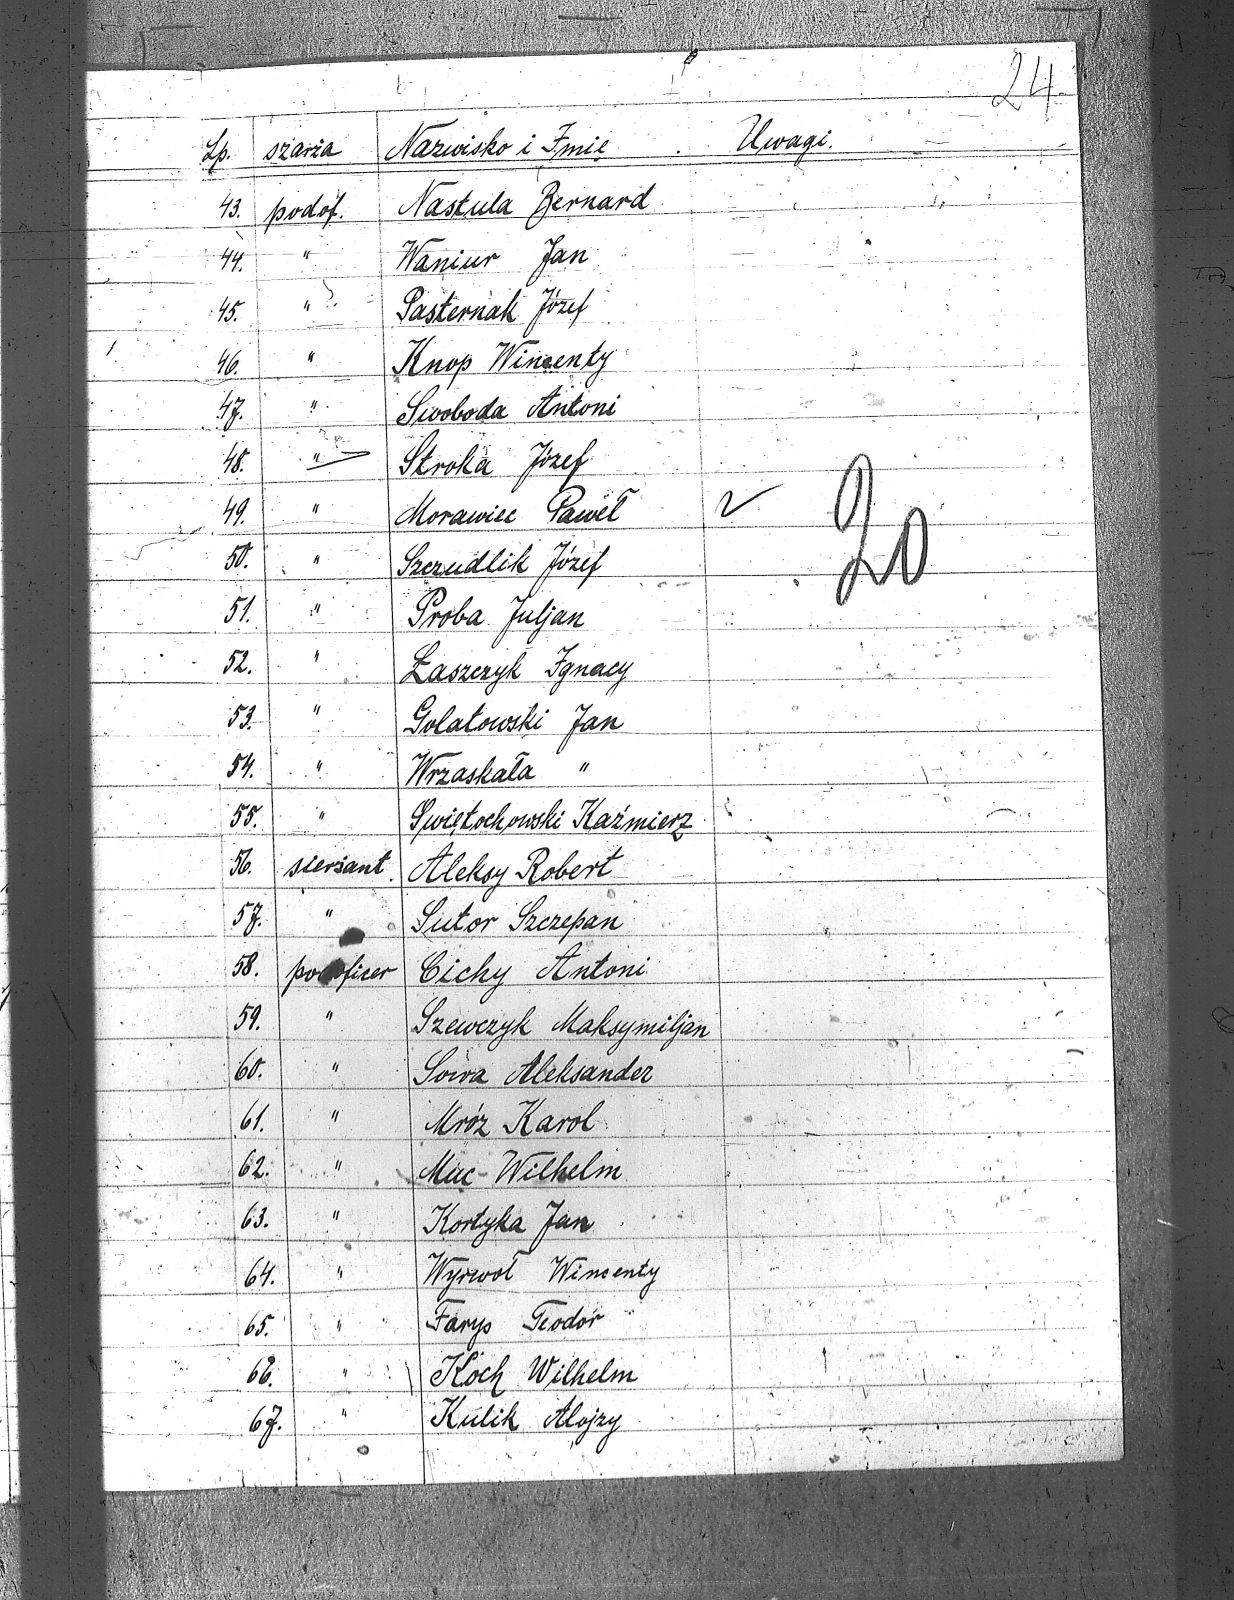 24.
Lp. szarża Nazwisko i Imię Uwagi.
43. podof. Nastula Bernard
44. " Waniur Jan
45. " Pasternak Józef
46. " Knop Wincenty
47. " Swoboda Antoni
48. " Stroka Józef
49. " Morawiec Paweł
20
50. " Szczudlik Józef
51. " Proba Juljan
52. " Łaszczyk Ignacy
53. " Golatowski Jan
54. " Wrzaskała "
55. " Świętochowski Kaźmierz
56. sierżant. Aleksy Robert
57. " Sutor Szczepan
58. podoficer Cichy Antoni
59. " Szewczyk Maksymiljan
60. " Sowa Aleksander
61. " Mróz Karol
62. " Muc Wilhelm
63. " Kortyka Jan
64. " Wyrwoł Wincenty
65. " Farys Teodor
66. " Koch Wilhelm
67. " Kulik Alojzy